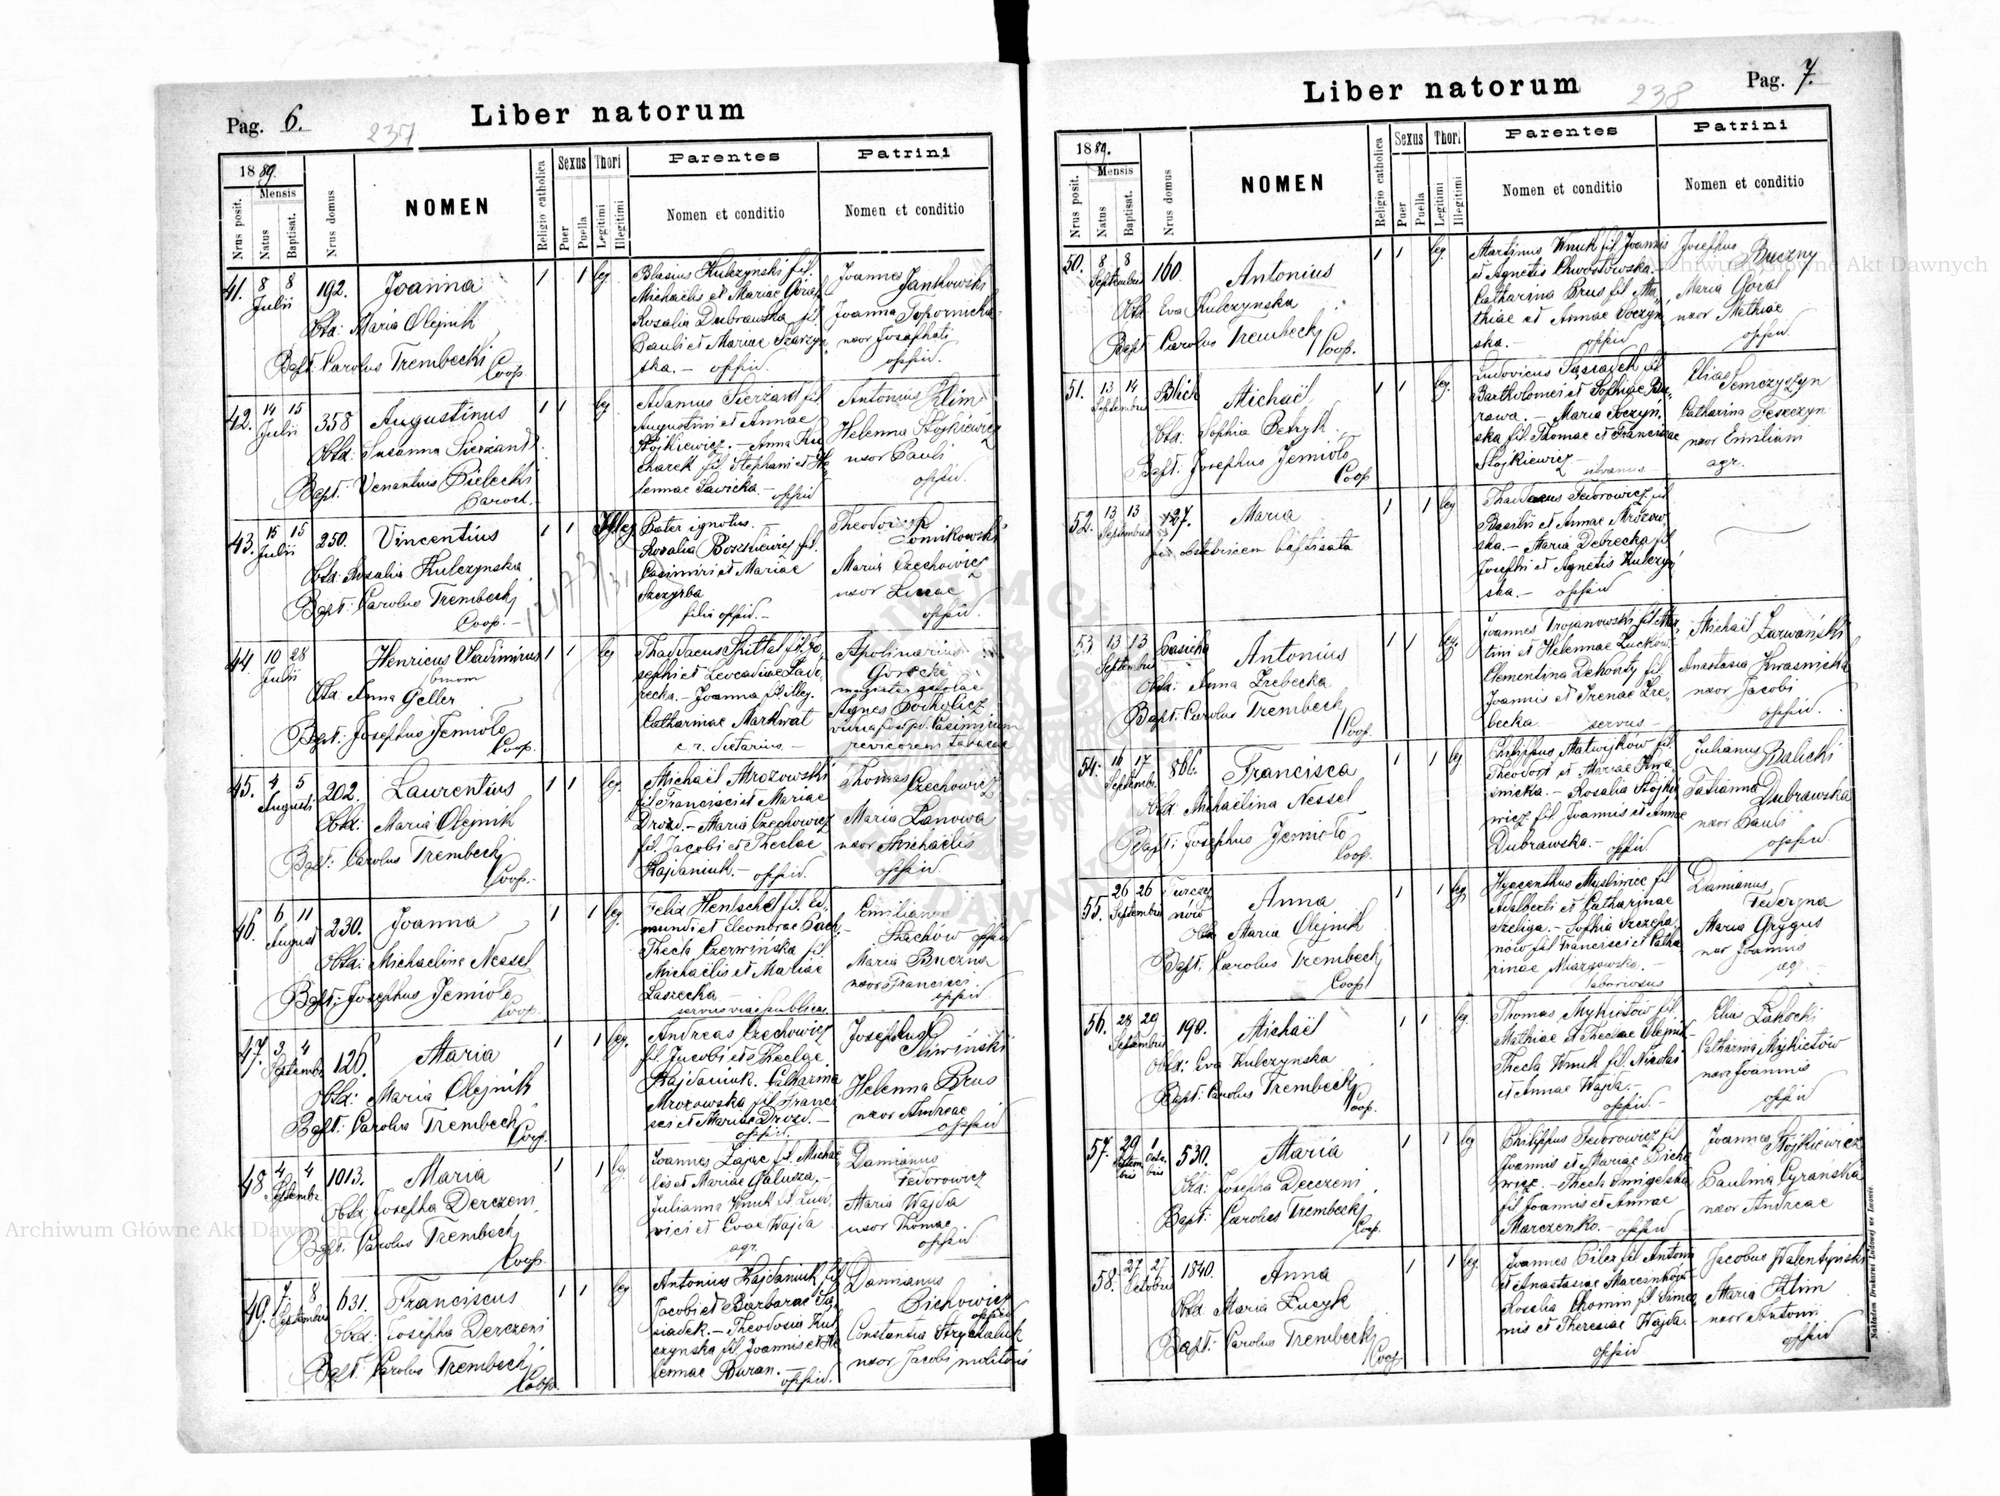 Pag. 6.
237
Liber natorum
1889.
Mensis
Nrus posit.
Natus
Baptisat.
Nrus domus
NOMEN
Religio catholica
Sexus
Puer
Puella
Thori
Legitimi
Illegitimi
Parentes
Nomen et conditio
Patrini
Nomen et conditio
41. 8 8 Julii 192. Joanna 1 1 leg.
Obst: Maria Olejnik
Bapt: Carolus Trembecki
Coop.
Blasius Kulczynski fil.
Michaëlis et Mariae Goral
Rosalia Dubrawska fil.
Pauli et Mariae
ska. – oppid.
Joannes
Jankowski
Joanna Topornicka
uxor Josaphati
oppid.
42. 14 15 Julii 358 Augustinus 1 1 leg
Obst: Susanna Sierżant
Bapt: Venantius Bielecki
Paroch.
Adamus Sierżant fil
Augustini et Annae
Stojkiewicz. – Anna Ku
charek fil. Stephani et He
lennae Sawicka. – oppid
Antonius Klim
Helenna Stojkiewicz
uxor Pauli
oppid.
43. 15 15 Julii 250. Vincentius 1 1 Illeg.
Obst: Rosalia Kulczynska
Bapt: Carolus Trembecki
Coop. –
Pater ignotus.
Rosalia Roszkiewicz fil.
Casimiri et Mariae
Szczyrba
filia oppid. –
Theodorus
Łomikowski
Maria Czechowicz
uxor Lucae
oppid.
44 10 28 Julii Henricus Vladimirus 1 1 leg
binom
Obst. Anna Geller
Bapt: Josephus Jemioło
Coop.
Thaddaeus Spittal fil. Jo
sephi et Leocadiae
recka. – Joanna fil. illeg.
Catharinae Markwat
Apolinarius
Gorecki
magister scholae
Agnes
45. 4 5 Augusti 202. Laurentius 1 1 leg.
Obst: Maria Olejnik
Bapt: Carolus Trembecki
Coop. –
Michaël Mrozowski
fil Francisci et Mariae
Drozd. – Maria Czechowicz
fil. Jacobi et Theclae
Hajdaniuk. – oppid.
Thomas
Czechowicz
Maria Łanowa
uxor Michaëlis
oppid.
46. 6 11 August 230. Joanna 1 1 leg.
Obst: Michaelina Nessel
Bapt: Josephus Jemioło
Coop.
Felix Hentschel fil. Ed
mundi et Eleonorae
Thecla Czerwińska fil.
Michaëlis et Mariae
Łaszecka –
servus viae publicae
Emilianus
Stachów oppid
Maria Buczna
uxor Francisci
oppid
47. 3 4 Septembr 126. Maria 1 1 leg.
Obst: Maria Olejnik
Bapt: Carolus Trembecki
Coop.
Andreas Czechowicz
fil Jacobi et Theclae
Hajdaniuk. Catharina
Mrozowska fil Franci
sci et Mariae Drozd. –
oppid.
Josephus
Śliwiński
Helenna Brus
uxor Andreae
oppid
48. 4 4 Septembr 1013. Maria 1 1 leg.
Obst. Josepha Derczeni
Bapt. Carolus Trembecki
Coop.
Joannes Zając fil. Michaë
lis et Mariae Galusza. –
Julianna Wnuk fil Ludo
vici et Evae Wajda
agr.
Damianus
Fedorowicz
Maria Wajda
uxor Thomae
oppid.
49. 7 8 Septembris 631. Franciscus 1 1 leg
Obst. Josepha Derczeni
Bapt. Carolus Trembecki
Coop.
Antonius Hajdaniuk fil
Jacobi et Barbarae Są
siadek. – Theodosia Kul
czynska fil Joannis et He
lennae Buran. – oppid.
Damianus
Bichowicz
oppid
Constantia
uxor Jacobi molitoris
Liber natorum
238
Pag. 7.
1889.
Mensis
Nrus posit.
Natus
Baptisat.
Nrus domus
NOMEN
Religio catholica
Sexus
Puer
Puella
Thori
Legitimi
Illegitimi
Parentes
Nomen et conditio
Patrini
Nomen et conditio
50. 8 8 Septembris 160. Antonius 1 1 leg.
Obst. Eva Kulczynska
Bapt Carolus Trembecki
Coop.
Martinus Wnuk fil Joannis
et Agnetis Chwostowska.
Catharina Brus fil Ma
thiae et Annae Soczyn
ska. – oppid
Josephus
Buczny
Maria Goral
uxor Mathiae
oppid
51. 13 14 Septembris Blich Michaël 1 1 leg.
Obst: Sophia Petryk
Bapt. Josephus Jemioło
Coop
Ludovicus Sąsiadek fil
Bartholomei et Sophiae
rawa. – Maria Soczyn
ska fil. Thomae et Franciscae
Stojkiewicz –
silvanus –
Elias
Semczyszyn
Catharina Teszczyn
uxor Emiliani
agr.
52. 13 13 Septembris 427. Maria 1 1 leg
per obstetricem baptisata
Thaddaeus Fedorowicz fil
Basilii et Annae Mrozow
ska. – Maria Debrecka fil
Josephi et Agnetis Kulczyn
ska. – oppid
53 13 13 Septembris Basicha Antonius 1 1 leg.
Obst: Anna Zrebecka
Bapt. Carolus Trembecki
Coop.
Joannes Trojanowski fil. Mar
tini et Helennae
Clementina Dekonty fil
Joannis et Irenae Zre
becka. servus –
Michaël
Zarwański
Anastasia Kwasnicka
uxor Jacobi
oppid.
54. 16 17 Septemb. 866. Francisca 1 1 leg
Obst: Michaëlina Nessel
Bapt: Josephus Jemioło
Coop.
Philippus Matwijków fil.
Theodori et Mariae Kwa
śnicka. – Rosalia Stojkie
wicz fil Joannis et Annae
Dubrawska. – oppid
Julianus
Balicki
Tatianna
Dubrawska
uxor Pauli
oppid
55. 26 26 Septembris Anna 1 1 leg
Obst Maria Olejnik
Bapt. Carolus Trembecki
Coop
Hyacinthus Mysliwiec fil
Adalberti et Catharinae
Szeliga. – Sophia Szczepa
nów fil Francisci et Catha
rinae Miazgowska. –
laboriosus
Damianus
Federyna
Maria Grygus
uxor Joannis
agr. –
56. 28 29 Septembris 198. Michaël 1 1 leg.
Obst: Eva Kulczynska
Bapt: Carolus Trembecki
Coop.
Thomas Mykietów fil.
Mathiae et Theclae Olejnik –
Thecla Wnuk fil. Nicolai
et Annae Wajda. –
oppid. –
Elias Lahocki
Catharina Mykietów
uxor Joannis
oppid
57. 29 1 Septembris Octobris 530. Maria 1 1 leg
Obst: Josepha Derczeni
Bapt: Carolus Trembecki
Coop.
Philippus Fedorowicz fil
Joannis et Mariae Bicho
wicz. – Thecla Smigelska
fil Joannis et Annae
Marczenko. – oppid
Joannes Stojkiewicz
Paulina Cyranska
uxor Andreae
58. 27 27 Octobris 1840. Anna 1 1 leg.
Obst Maria Łucyk
Bapt: Carolus Trembecki
Coop.
Joannes Piler fil Antoni
et Anastasiae
Rosalia Chomin fil Simeo
nis et Theresiae Wajda. –
oppid
Jacobus Walentyński
Maria Klim
uxor Antoni
oppid
Nakładem Drukarni Ludowej we Lwowie.
Archiwum Główne Akt Dawnych
Archiwum Główne Akt Dawnych